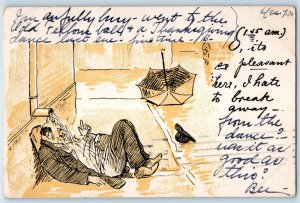 I'm awfully busy - went to the
Odd Fellows ball & a Thanksgiving
dance last eve. - fine time - is
(1.45 am)
), its
so pleasant
here, I hate
to break
away -
from the
dance?
was it as
good as
this?
Bee -